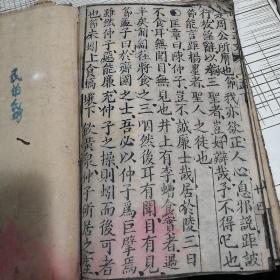 周公所膺也節我亦欲正人心息邪說距詖
行放淫辭以承三聖者豈好辯哉予不得已也
節能言距楊墨者聖人之徒也
○匡章曰陳仲子豈不誠廉士哉居於陵三日
不食耳無聞目無見也井上有李螬食實者過
半矣匍匐往將食之三咽然後耳有聞目有見
節孟子曰於齊國之士吾必以仲子為巨擘焉
雖然仲子惡能廉充仲子之操則蚓而後可者
也節夫蚓上食槁壤下飲黃泉仲子所居之室